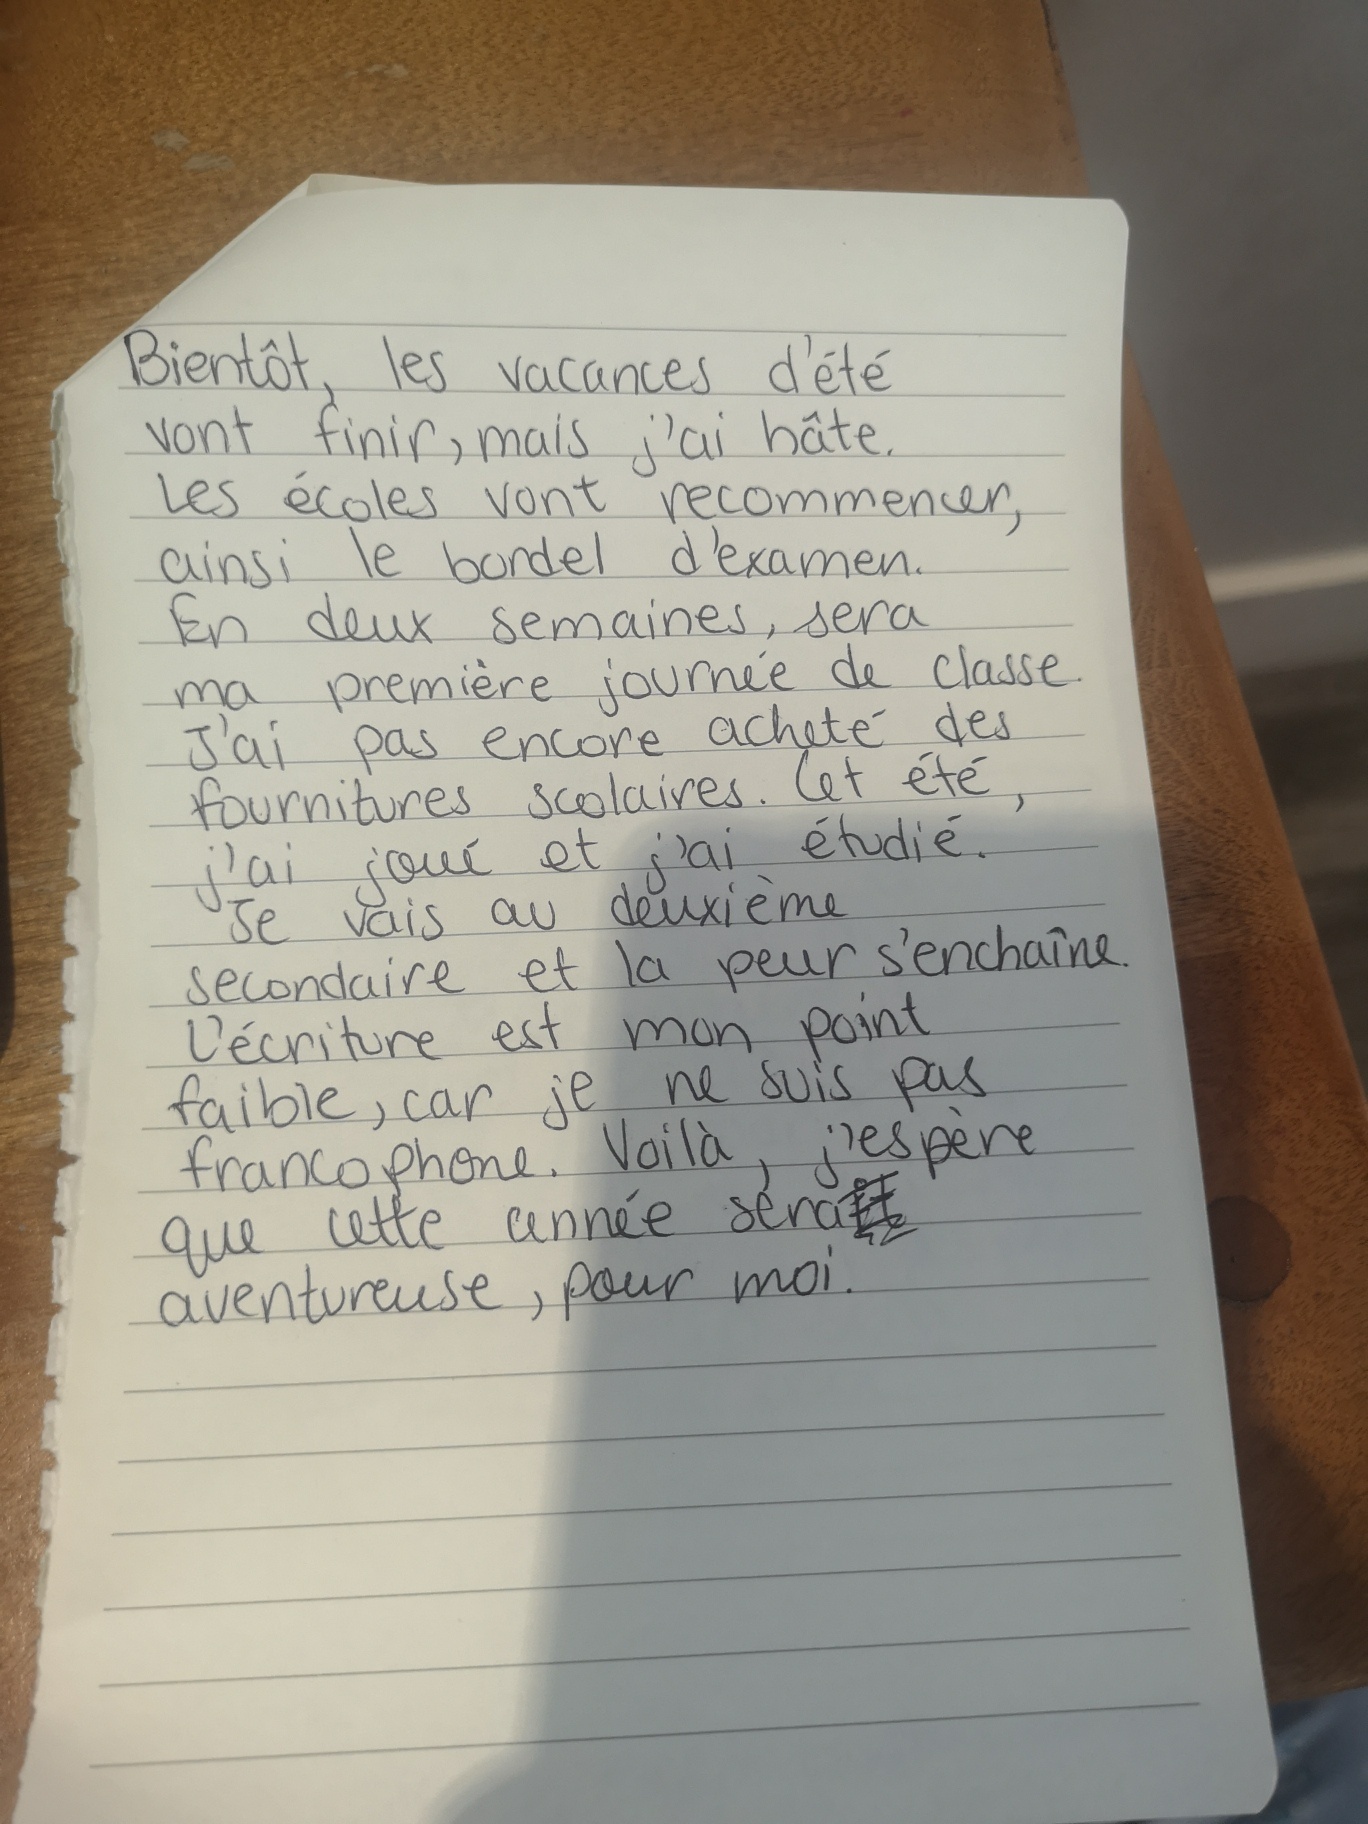 Bientôt, les vacances d'été
vont finir, mais j'ai hâte.
Les écoles vont recommencer,
ainsi le bordel d'examen.
En deux semaines, sera
ma première journée de classe.
J'ai pas encore acheté des
fournitures scolaires. Cet été,
j'ai joué et j'ai étudié.
Je vais au deuxième
secondaire et la peur s'enchaîne.
L'écriture est mon point
faible, car je ne suis pas
francophone. Voilà, j'espère
que cette année sera
aventureuse, pour moi.